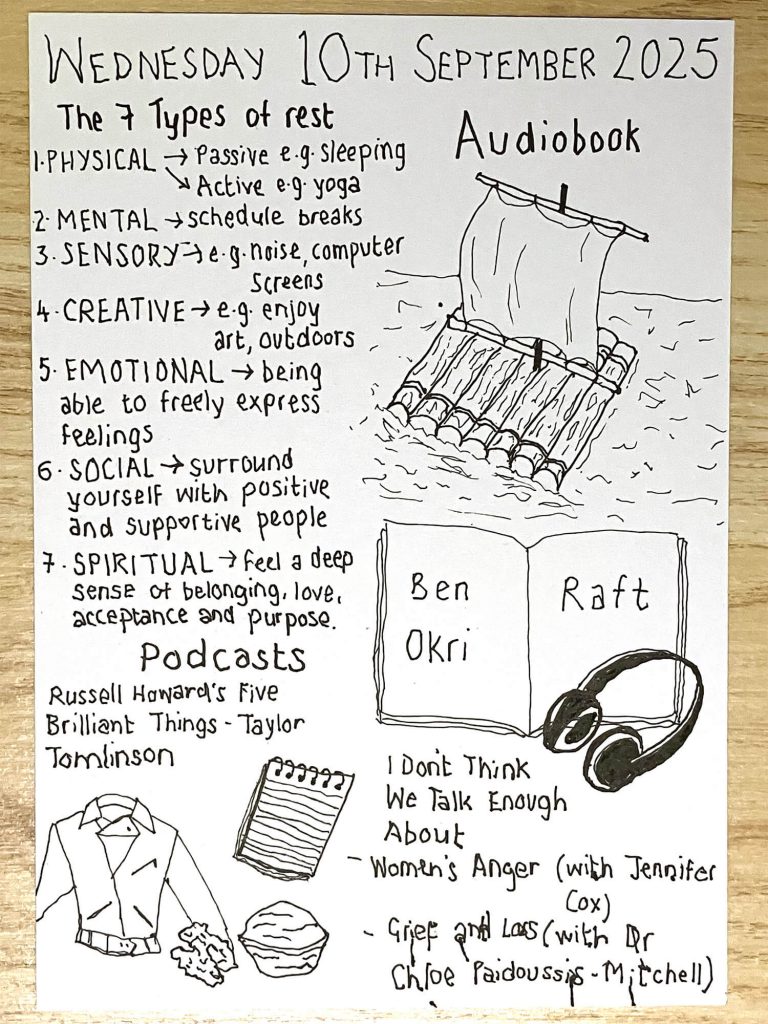 WEDNESDAY 10TH SEPTEMBER 2025
The 7 Types of rest
1. PHYSICAL → Passive e.g. sleeping
↘ Active e.g. yoga
2. MENTAL → schedule breaks
3. SENSORY → e.g. noise, computer
screens
4. CREATIVE → e.g. enjoy
art, outdoors
5. EMOTIONAL → being
able to freely express
feelings
6. SOCIAL → surround
yourself with positive
and supportive people
7. SPIRITUAL → feel a deep
sense of belonging, love,
acceptance and purpose.
Podcasts
Russell Howard's Five
Brilliant Things - Taylor
Tomlinson
Audiobook
Ben
Okri
Raft
I Don't Think
We Talk Enough
About
- Women's Anger (with Jennifer
Cox)
- Grief and Loss (with Dr
Chloe Paidoussis-Mitchell)